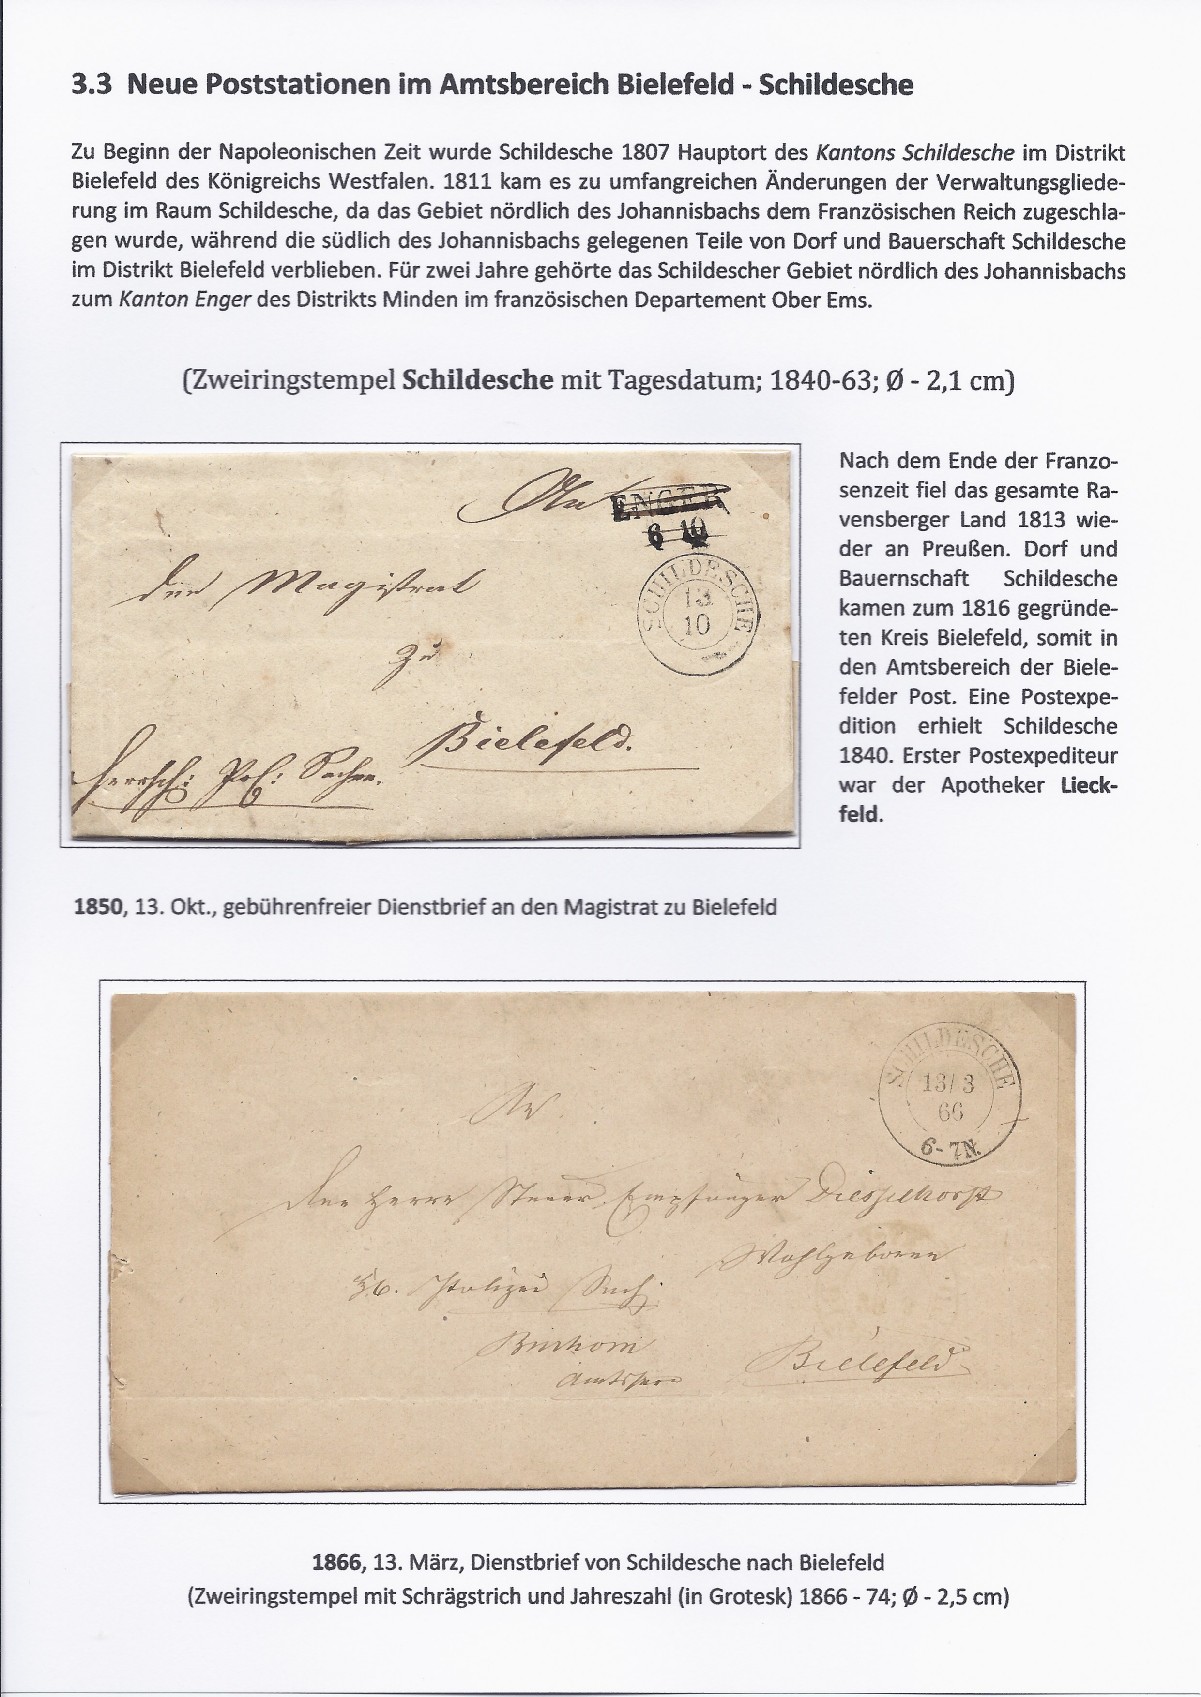 3.3 Neue Poststationen im Amtsbereich Bielefeld - Schildesche
Zu Beginn der Napoleonischen Zeit wurde Schildesche 1807 Hauptort des Kantons Schildesche im Distrikt
Bielefeld des Königreichs Westfalen. 1811 kam es zu umfangreichen Änderungen der Verwaltungsgliede-
rung im Raum Schildesche, da das Gebiet nördlich des Johannisbachs dem Französischen Reich zugeschla-
gen wurde, während die südlich des Johannisbachs gelegenen Teile von Dorf und Bauerschaft Schildesche
im Distrikt Bielefeld verblieben. Für zwei Jahre gehörte das Schildescher Gebiet nördlich des Johannisbachs
zum Kanton Enger des Distrikts Minden im französischen Departement Ober Ems.
(Zweiringstempel Schildesche mit Tagesdatum; 1840-63; Ø - 2,1 cm)
ENGER
6 10
SCHILDESCHE
13
10
den Magistrat
zu
Bielefeld.
Nach dem Ende der Franzo-
senzeit fiel das gesamte Ra-
vensberger Land 1813 wie-
der an Preußen. Dorf und
Bauernschaft Schildesche
kamen zum 1816 gegründe-
ten Kreis Bielefeld, somit in
den Amtsbereich der Biele-
felder Post. Eine Postexpe-
dition erhielt Schildesche
1840. Erster Postexpediteur
war der Apotheker Lieck-
feld.
1850, 13. Okt., gebührenfreier Dienstbrief an den Magistrat zu Bielefeld
SCHILDESCHE
13/3
66
6-7N.
An
Steuer Empfänger Diesselhorst
Wohlgeboren
Polizei
Bielefeld
1866, 13. März, Dienstbrief von Schildesche nach Bielefeld
(Zweiringstempel mit Schrägstrich und Jahreszahl (in Grotesk) 1866 - 74; Ø - 2,5 cm)